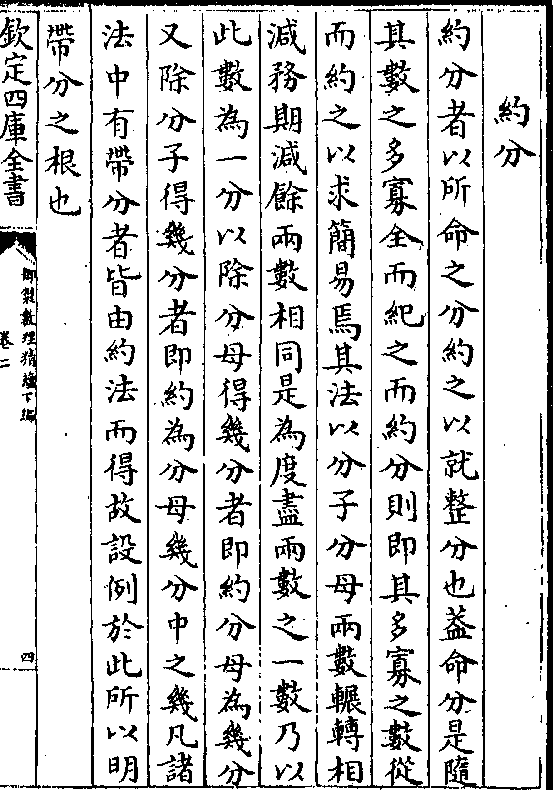 約分
約分者以所命之分約之以就整分也葢命分是隨
其數之多寡全而紀之而約分則即其多寡之數從
而約之以求簡易焉其法以分子分母兩數輾轉相
減務期減餘兩數相同是為度盡兩數之一數乃以
此數為一分以除分母得幾分者即約分母為幾分
又除分子得幾分者即約為分母幾分中之幾凡諸
法中有帶分者皆由約法而得故設例於此所以明
帶分之根也
欽定四庫全書
御製數理精蘊下編
卷二
四